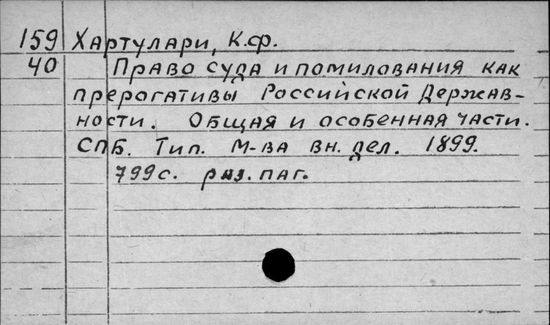 159 Хартулари, К.Ф.
40 Право суда и помилования как
прерогативы Российской Держав-
ности. Общая и особенная части.
СПБ. Тип. М-ва вн. дел. 1899.
799 с. раз. паг.